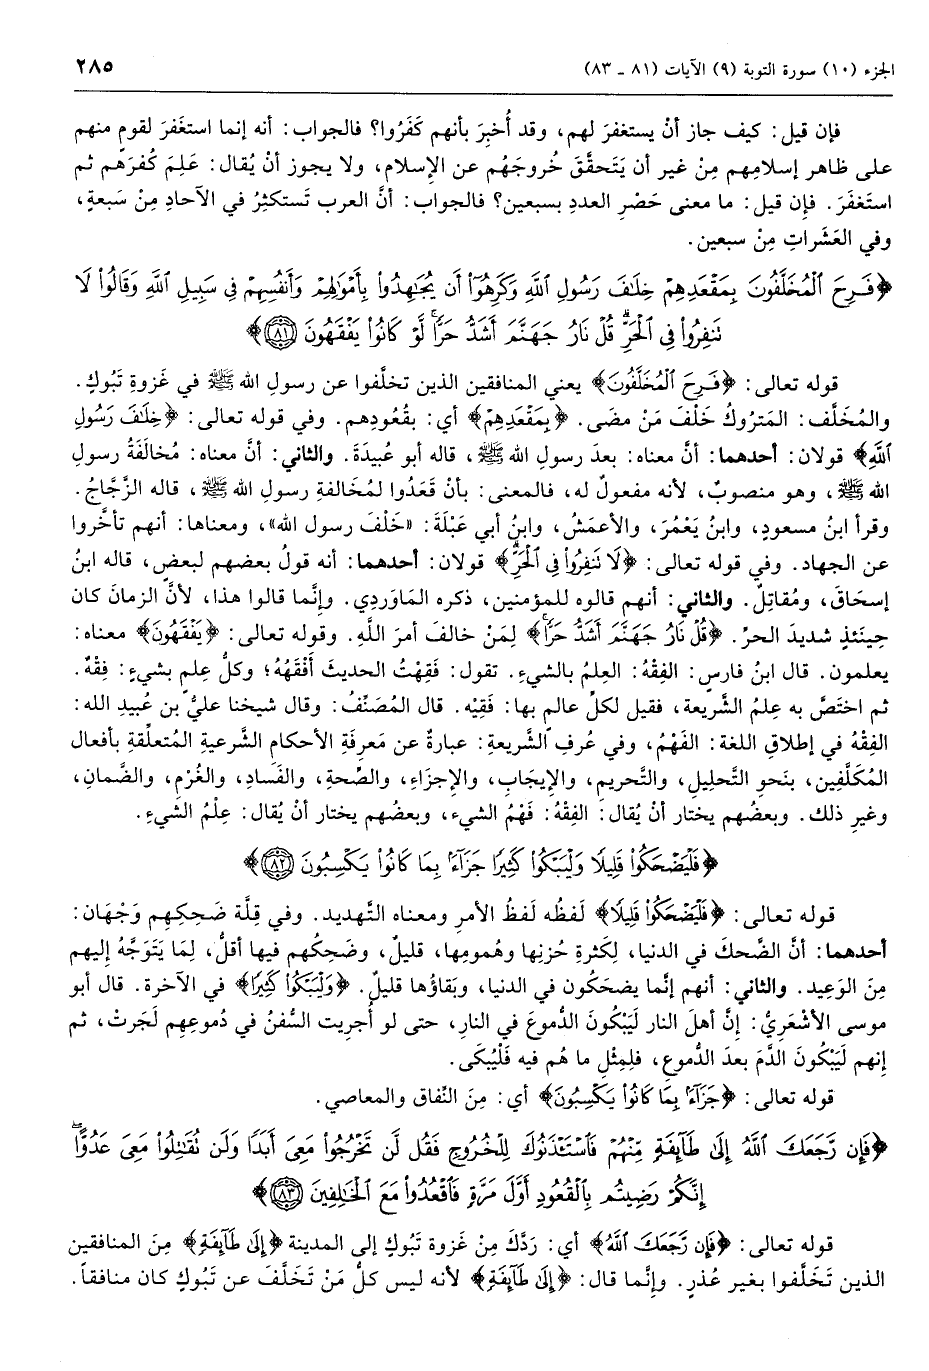 الجزء (١٠) سورة التوبة (٩) الآيات (٨١ ـ ٨٣)
٢٨٥
فإن قيل: كيف جاز أنْ يستغفرَ لهم، وقد أُخبِرَ بأنهم كَفَرُوا؟ فالجواب: أنه إنما استغفَرَ لقومٍ منهم
على ظاهر إسلامِهم مِنْ غير أن يَتَحقَّقَ خُروجَهُم عن الإسلام، ولا يجوز أنْ يُقال: عَلِمَ كُفرَهُم ثم
استَغفَرَ. فإن قيل: ما معنى حَصْرِ العددِ بسبعين؟ فالجواب: أنَّ العرب تَستكثِرُ في الآحادِ مِنْ سَبعةٍ،
وفي العَشَراتِ مِنْ سبعين.
﴿فَرِحَ ٱلْمُخَلَّفُونَ بِمَقْعَدِهِمْ خِلَٰفَ رَسُولِ ٱللَّهِ وَكَرِهُوٓا۟ أَن يُجَٰهِدُوا۟ بِأَمْوَٰلِهِمْ وَأَنفُسِهِمْ فِى سَبِيلِ ٱللَّهِ وَقَالُوا۟ لَا
تَنفِرُوا۟ فِى ٱلْحَرِّ ۗ قُلْ نَارُ جَهَنَّمَ أَشَدُّ حَرًّا ۚ لَّوْ كَانُوا۟ يَفْقَهُونَ ﴿٨١﴾﴾
قوله تعالى: ﴿فَرِحَ ٱلْمُخَلَّفُونَ﴾ يعني المنافقين الذين تخلَّفوا عن رسولِ الله ﷺ في غَزوةِ تَبُوكٍ.
والمُخَلَّف: المَتروكُ خَلْفَ مَنْ مضى. ﴿بِمَقْعَدِهِمْ﴾ أي: بقُعودِهم. وفي قوله تعالى: ﴿خِلَٰفَ رَسُولِ
ٱللَّهِ﴾ قولان: أحدهما: أنَّ معناه: بعدَ رسولِ الله ﷺ، قاله أبو عُبيدَةَ. والثاني: أنَّ معناه: مُخالَفَةُ رسولِ
الله ﷺ، وهو منصوبٌ، لأنه مفعولٌ له، فالمعنى: بأنْ قَعَدُوا لمُخالفةِ رسولِ الله ﷺ، قاله الزَّجَّاجُ.
وقرأ ابنُ مسعودٍ، وابنُ يَعْمُرَ، والأعمَشُ، وابنُ أبي عَبْلَةَ: «خَلْفَ رسولِ الله»، ومعناها: أنهم تأخَّروا
عن الجهاد. وفي قوله تعالى: ﴿لَا تَنفِرُوا۟ فِى ٱلْحَرِّ ۗ﴾ قولان: أحدهما: أنه قولُ بعضهم لبعضٍ، قاله ابنُ
إسحَاقَ، ومُقاتِلٌ. والثاني: أنهم قالوه للمؤمنين، ذكره المَاوَردِي. وإنَّما قالوا هذا، لأنَّ الزمانَ كان
حِينَئذٍ شديدَ الحرِّ. ﴿قُلْ نَارُ جَهَنَّمَ أَشَدُّ حَرًّا ۚ﴾ لِمَنْ خالفَ أمرَ اللَّهِ. وقوله تعالى: ﴿يَفْقَهُونَ﴾ معناه:
يعلمون. قال ابنُ فارسٍ: الفِقهُ: العِلمُ بالشيءِ. تقول: فَقِهْتُ الحديثَ أَفْقَهُهُ؛ وكلُّ عِلمٍ بشيءٍ: فِقهٌ.
ثم اختَصَّ به عِلمُ الشَّريعة، فقيل لكلِّ عالمٍ بها: فَقِيه. قال المُصَنِّفُ: وقال شيخنا عليُّ بن عُبيدِ الله:
الفِقهُ في إطلاقِ اللغة: الفَهْمُ، وفي عُرفِ الشَّريعةِ: عبارةٌ عن مَعرِفةِ الأحكامِ الشرعيةِ المُتعلِّقةِ بأفعال
المُكَلَّفِين، بنَحوِ التَّحليلِ، والتَّحريمِ، والإيجَابِ، والإجزَاءِ، والصِّحةِ، والفَسَادِ، والغُرْمِ، والضَّمانِ،
وغيرِ ذلك. وبعضُهم يختار أنْ يُقال: الفِقهُ: فَهْمُ الشيء، وبعضُهم يختار أنْ يُقال: عِلْمُ الشيءِ.
﴿فَلْيَضْحَكُوا۟ قَلِيلًا وَلْيَبْكُوا۟ كَثِيرًا جَزَآءًۢ بِمَا كَانُوا۟ يَكْسِبُونَ ﴿٨٢﴾﴾
قوله تعالى: ﴿فَلْيَضْحَكُوا۟ قَلِيلًا﴾ لَفظُه لَفظُ الأمرِ ومعناه التَّهديد. وفي قِلَّة ضَحِكِهِم وَجْهَان:
أحدهما: أنَّ الضَّحكَ في الدنيا، لِكَثرةِ حُزنِها وهُمومِها، قليلٌ، وضَحِكُهم فيها أقلُّ، لِمَا يَتَوَجَّهُ إليهم
مِنَ الوَعِيد. والثاني: أنهم إنَّما يضحَكُون في الدنيا، وبقاؤُها قليلٌ. ﴿وَلْيَبْكُوا۟ كَثِيرًا﴾ في الآخرة. قال أبو
موسى الأشعَريُّ: إنَّ أهلَ النار لَيَبْكُونَ الدُّموعَ في النارِ، حتى لو أُجرِيت السُّفنُ في دُموعِهِم لَجَرتْ، ثم
إنهم لَيَبْكُونَ الدَّمَ بعدَ الدُّموعِ، فلِمِثْلِ ما هُم فيه فَلْيُبكَى.
قوله تعالى: ﴿جَزَآءًۢ بِمَا كَانُوا۟ يَكْسِبُونَ﴾ أي: مِنَ النِّفاق والمعاصي.
﴿فَإِن رَّجَعَكَ ٱللَّهُ إِلَىٰ طَآئِفَةٍ مِّنْهُمْ فَٱسْتَـْٔذَنُوكَ لِلْخُرُوجِ فَقُل لَّن تَخْرُجُوا۟ مَعِىَ أَبَدًا وَلَن تُقَٰتِلُوا۟ مَعِىَ عَدُوًّا ۖ
إِنَّكُمْ رَضِيتُم بِٱلْقُعُودِ أَوَّلَ مَرَّةٍ فَٱقْعُدُوا۟ مَعَ ٱلْخَٰلِفِينَ ﴿٨٣﴾﴾
قوله تعالى: ﴿فَإِن رَّجَعَكَ ٱللَّهُ﴾ أي: رَدَّكَ مِنْ غَزوة تَبُوكٍ إلى المدينة ﴿إِلَىٰ طَآئِفَةٍ﴾ مِنَ المنافقين
الذين تَخَلَّفوا بغير عُذرٍ. وإنَّما قال: ﴿إِلَىٰ طَآئِفَةٍ﴾ لأنه ليس كلُّ مَنْ تَخَلَّفَ عن تَبُوكٍ كان منافقاً.